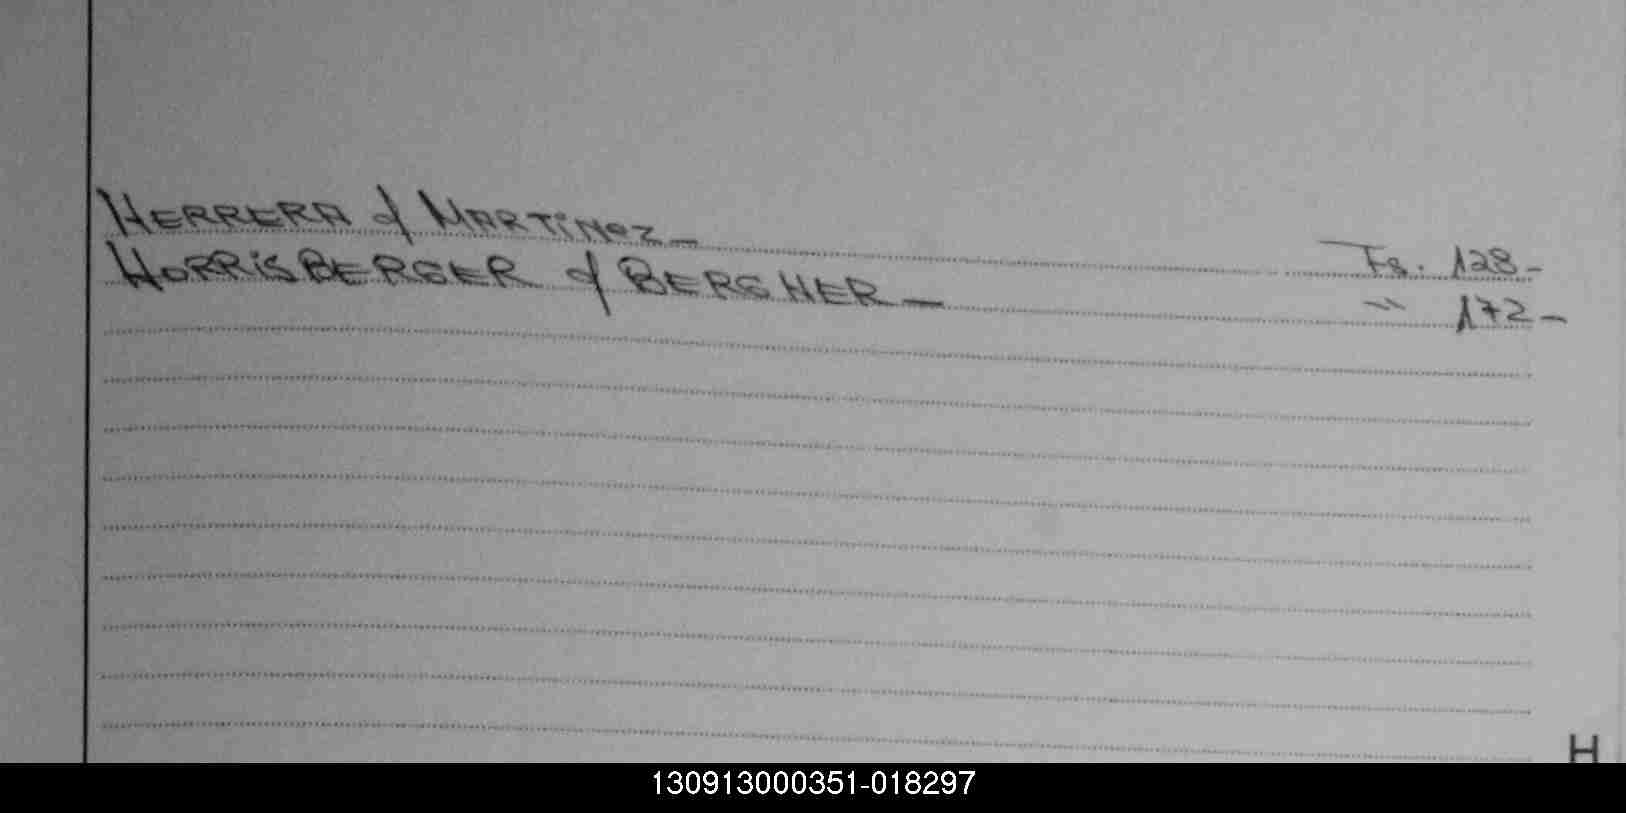 HERRERA y MARTiNez_ Fs. 128_
HORRiSBERGER y BERGHER_ " 172_
H
130913000351-018297